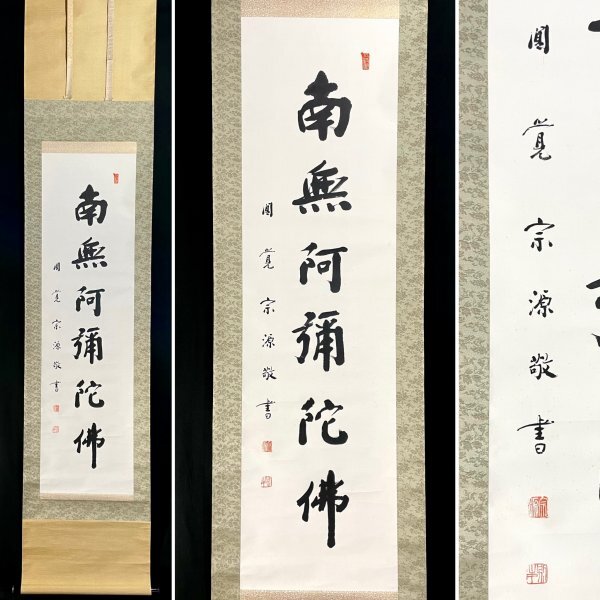 南無阿彌陀佛
圓覺宗源敬書
南無阿彌陀佛
圓覺宗源敬書
圓覺宗源敬書